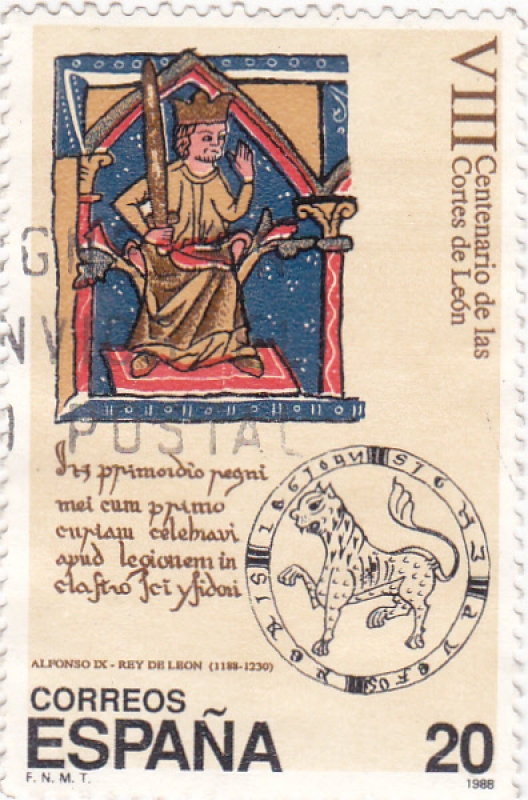 VIII Centenario de las
Cortes de León
POSTAL
In primordio regni
mei cum primo
curiam celebravi
apud legionem in
claſtro ſci yſidori
ALFONSO IX - REY DE LEON (1188-1230)
CORREOS
ESPAÑA
20
F. N. M. T.
1988